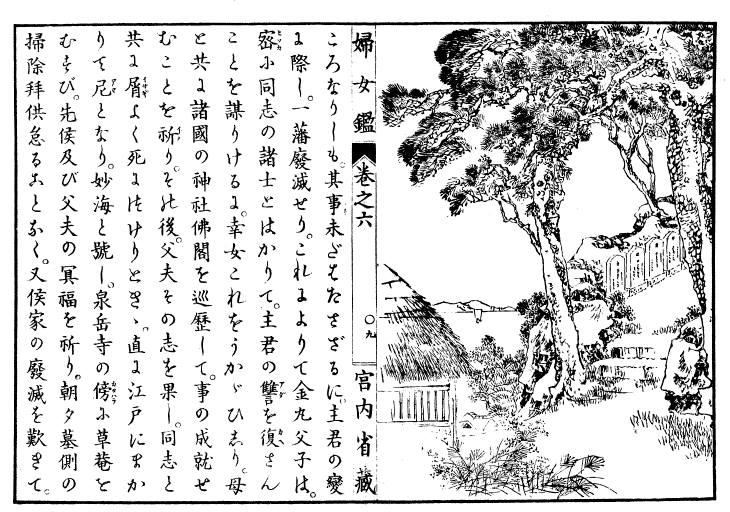 婦女鑑 巻之六 〇九 宮内省藏
ころなりしも。其事未だはたさゞるに。主君の變
に際し。一藩廢滅せり。これによりて金丸父子は。
密に同志の諸士とはかりて。主君の讐を復さん
ことを謀りけるに。幸女これをうかゞひしり。母
と共に諸國の神社佛閣を巡歴して。事の成就せ
むことを祈り。その後。父夫その志を果し。同志と
共に屑よく死につけりときゝ。直に江戸にまか
りて尼となり。妙海と號し。泉岳寺の傍に草菴を
むすび。先侯及び父夫の冥福を祈り。朝夕墓側の
掃除拜供怠ることなく。又侯家の廢滅を歎きて。